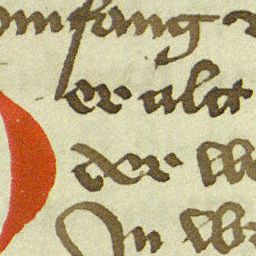 omfang
er alt
der we
In wi